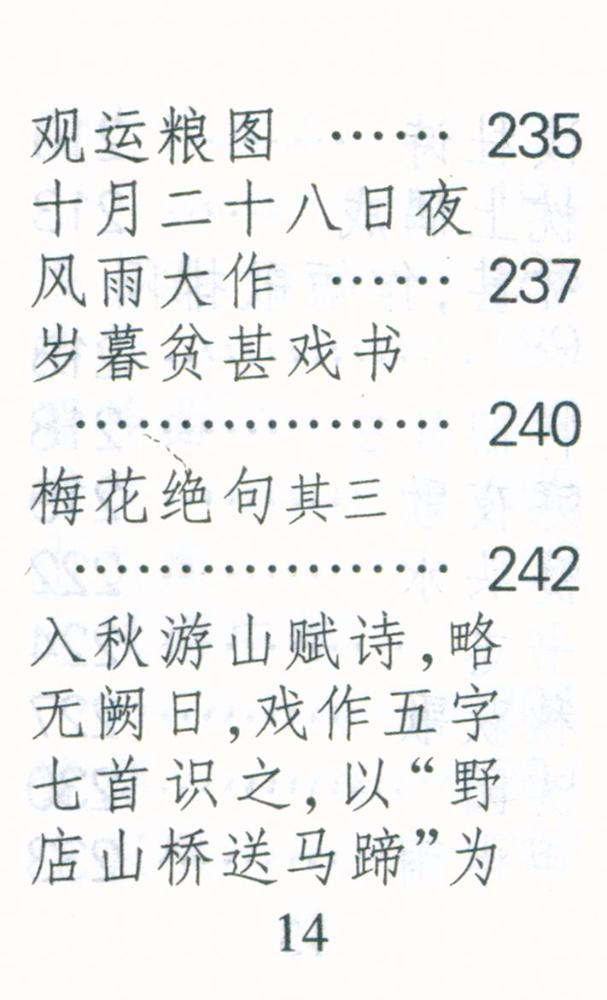 观运粮图 …… 235
十月二十八日夜
风雨大作 …… 237
岁暮贫甚戏书
……………… 240
梅花绝句其三
……………… 242
入秋游山赋诗,略
无阙日,戏作五字
七首识之,以“野
店山桥送马蹄”为
14